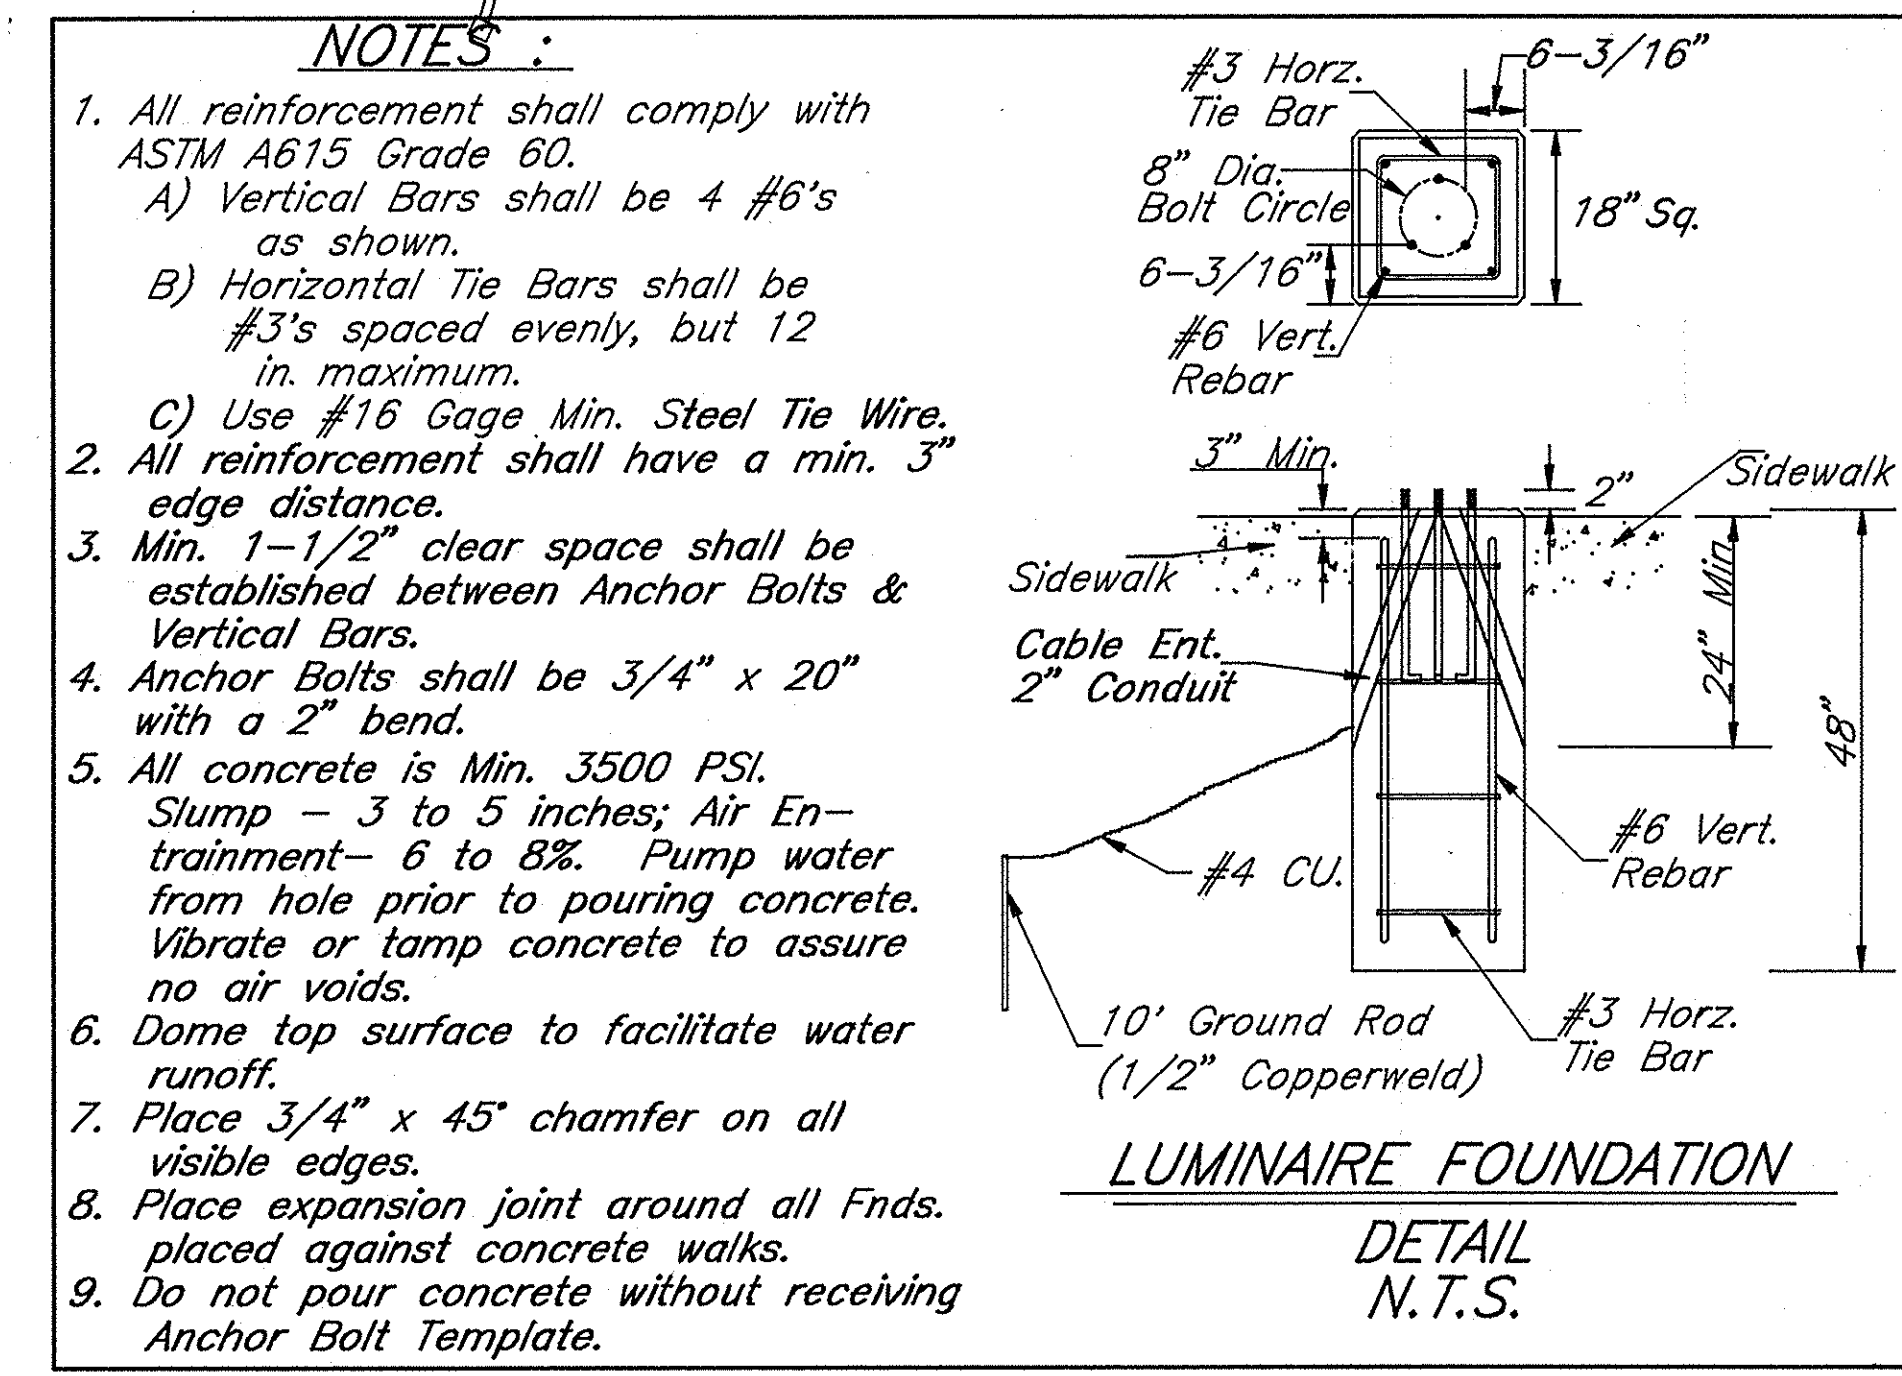 NOTES :
1. All reinforcement shall comply with
ASTM A615 Grade 60.
A) Vertical Bars shall be 4 #6's
as shown.
B) Horizontal Tie Bars shall be
#3's spaced evenly, but 12
in. maximum.
C) Use #16 Gage Min. Steel Tie Wire.
2. All reinforcement shall have a min. 3"
edge distance.
3. Min. 1-1/2" clear space shall be
established between Anchor Bolts &
Vertical Bars.
4. Anchor Bolts shall be 3/4" x 20"
with a 2" bend.
5. All concrete is Min. 3500 PSI.
Slump - 3 to 5 inches; Air En-
trainment- 6 to 8%. Pump water
from hole prior to pouring concrete.
Vibrate or tamp concrete to assure
no air voids.
6. Dome top surface to facilitate water
runoff.
7. Place 3/4" x 45° chamfer on all
visible edges.
8. Place expansion joint around all Fnds.
placed against concrete walks.
9. Do not pour concrete without receiving
Anchor Bolt Template.
#3 Horz.
Tie Bar
6-3/16"
8" Dia.
Bolt Circle
18" Sq.
6-3/16"
#6 Vert.
Rebar
3" Min.
2"
Sidewalk
Sidewalk
24" Min.
Cable Ent.
2" Conduit
48"
#6 Vert.
Rebar
#4 CU.
10' Ground Rod
(1/2" Copperweld)
#3 Horz.
Tie Bar
LUMINAIRE FOUNDATION
DETAIL
N.T.S.